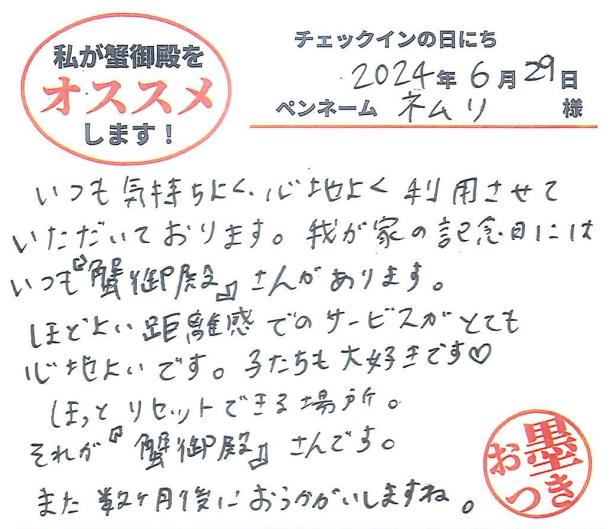 私が蟹御殿を
オススメ
します！
チェックインの日にち
2024年6月29日
ペンネーム ネムリ 様
いつも気持ちよく、心地よく利用させて
いただいております。我が家の記念日には
いつも『蟹御殿』さんがあります。
ほどよい距離感でのサービスがとても
心地よいです。子たちも大好きです♡
ほっとリセットできる場所。
それが『蟹御殿』さんです。
また数ヶ月後におうかがいしますね。
お墨
つき